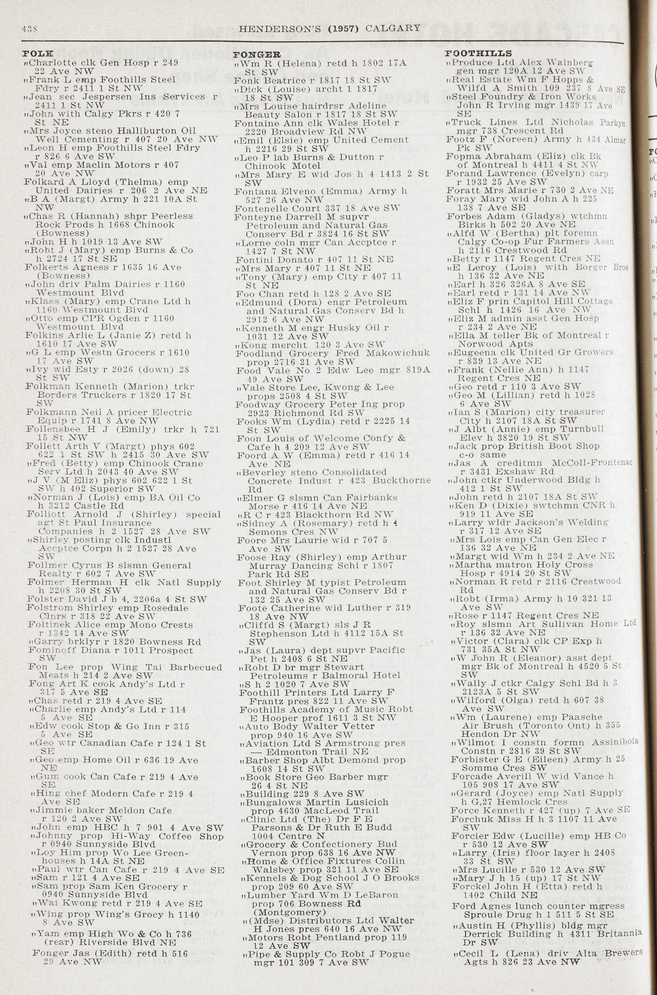 438
HENDERSON'S (1957) CALGARY
FOLK
„Charlotte clk Gen Hosp r 249
22 Ave NW
„Frank L emp Foothills Steel
Fdry r 2411 1 St NW
„Jean sec Jespersen Ins Services r
2411 1 St NW
„John with Calgy Pkrs r 420 7
St NE
„Mrs Joyce steno Halliburton Oil
Well Cementing r 407 20 Ave NW
„Leon H emp Foothills Steel Fdry
r 826 6 Ave SW
„Val emp Maclin Motors r 407
20 Ave NW
Folkard A Lloyd (Thelma) emp
United Dairies r 206 2 Ave NE
„B A (Margt) Army h 221 10A St
NW
„Chas R (Hannah) shpr Peerless
Rock Prods h 1668 Chinook
(Bowness)
„John H h 1019 13 Ave SW
„Robt J (Mary) emp Burns & Co
h 2724 17 St SE
Folkerts Agness r 1635 16 Ave
(Bowness)
„John driv Palm Dairies r 1160
Westmount Blvd
„Klaas (Mary) emp Crane Ltd h
1160 Westmount Blvd
„Otto emp CPR Ogden r 1160
Westmount Blvd
Folkins Arlie L (Janie Z) retd h
1610 17 Ave SW
„G L emp Westn Grocers r 1610
17 Ave SW
„Ivy wid Esty r 2026 (down) 28
St SW
Folkman Kenneth (Marion) trkr
Borders Truckers r 1820 17 St
SW
Folkmann Neil A pricer Electric
Equip r 1741 8 Ave NW
Follensbee H J (Emily) trkr h 721
15 St NW
Follett Arth V (Margt) phys 602
622 1 St SW h 2415 30 Ave SW
„Fred (Betty) emp Chinook Crane
Serv Ltd h 2043 40 Ave SW
„J V (M Eliz) phys 602 622 1 St
SW h 402 Superior SW
„Norman J (Lois) emp BA Oil Co
h 3212 Castle Rd
Folliott Arnold J (Shirley) special
agt St Paul Insurance
Companies h 2 1527 28 Ave SW
„Shirley posting clk Industl
Accptce Corpn h 2 1527 28 Ave
SW
Follmer Cyrus B slsmn General
Realty r 602 7 Ave SW
Folmer Herman H clk Natl Supply
h 2208 30 St SW
Folster David J h 4, 2206a 4 St SW
Folstrom Shirley emp Rosedale
Clnrs r 318 22 Ave SW
Foltinek Alice emp Mono Crests
r 1342 14 Ave SW
„Garry brklyr r 1820 Bowness Rd
Fominoff Diana r 1011 Prospect
SW
Fon Lee prop Wing Tai Barbecued
Meats h 214 2 Ave SW
Fong Art K cook Andy's Ltd r
317 5 Ave SE
„Chas retd r 219 4 Ave SE
„Charlie emp Andy's Ltd r 114
5 Ave SE
„Edw cook Stop & Go Inn r 315
5 Ave SE
„Geo wtr Canadian Cafe r 124 1 St
SE
„Geo emp Home Oil r 636 19 Ave
NE
„Gum cook Can Cafe r 219 4 Ave
SE
„Hing chef Modern Cafe r 219 4
Ave SE
„Jimmie baker Meldon Cafe
r 120 2 Ave SW
„John emp HBC h 7 901 4 Ave SW
„Johnny prop Hi-Way Coffee Shop
r 0940 Sunnyside Blvd
„Loy Him prop Wo Lee Green-
houses h 14A St NE
„Paul wtr Can Cafe r 219 4 Ave SE
„Sam r 121 4 Ave SE
„Sam prop Sam Ken Grocery r
0940 Sunnyside Blvd
„Wai Kwong retd r 219 4 Ave SE
„Wing prop Wing's Grocy h 1140
8 Ave SW
„Yam emp High Wo & Co h 736
(rear) Riverside Blvd NE
Fonger Jas (Edith) retd h 516
29 Ave NW
FONGER
„Wm R (Helena) retd h 1802 17A
St SW
Fonk Beatrice r 1817 18 St SW
„Dick (Louise) archt 1 1817
18 St SW
„Mrs Louise hairdrsr Adeline
Beauty Salon r 1817 18 St SW
Fontaine Ann clk Wales Hotel r
2220 Broadview Rd NW
„Emil (Elsie) emp United Cement
h 2216 29 St SW
„Leo P lab Burns & Dutton r
Chinook Motel
„Mrs Mary E wid Jos h 4 1413 2 St
SW
Fontana Elveno (Emma) Army h
527 26 Ave NW
Fontenelle Court 337 18 Ave SW
Fonteyne Darrell M supvr
Petroleum and Natural Gas
Conserv Bd r 3824 16 St SW
„Lorne coln mgr Can Accptce r
1427 7 St NW
Fontini Donato r 407 11 St NE
„Mrs Mary r 407 11 St NE
„Tony (Mary) emp City r 407 11
St NE
Foo Chan retd h 128 2 Ave SE
„Edmund (Dora) engr Petroleum
and Natural Gas Conserv Bd h
2912 6 Ave NW
„Kenneth M engr Husky Oil r
1031 12 Ave SW
„Kong mercht 120 3 Ave SW
Foodland Grocery Fred Makowichuk
prop 2716 21 Ave SW
Food Vale No 2 Edw Lee mgr 819A
49 Ave SW
„Vale Store Lee, Kwong & Lee
props 2508 4 St SW
Foodway Grocery Peter Ing prop
2923 Richmond Rd SW
Fooks Wm (Lydia) retd r 2225 14
St SW
Foon Louis of Welcome Confy &
Cafe h 4 209 12 Ave SW
Foord A W (Emma) retd r 416 14
Ave NE
„Beverley steno Consolidated
Concrete Indust r 423 Buckthorne
Rd
„Elmer G slsmn Can Fairbanks
Morse r 416 14 Ave NE
„R C r 423 Blackthorn Rd NW
„Sidney A (Rosemary) retd h 4
Semons Cres NW
Foore Mrs Laurie wid r 707 5
Ave SW
Foose Ray (Shirley) emp Arthur
Murray Dancing Schl r 1807
Park Rd SE
Foot Shirley M typist Petroleum
and Natural Gas Conserv Bd r
132 25 Ave SW
Foote Catherine wid Luther r 319
18 Ave NW
„Cliffd S (Margt) sls J R
Stephenson Ltd h 4112 15A St
SW
„Jas (Laura) dept supvr Pacific
Pet h 2408 6 St NE
„Robt D br mgr Stewart
Petroleums r Balmoral Hotel
„S h 2 1020 7 Ave SW
Foothill Printers Ltd Larry F
Frantz pres 822 11 Ave SW
Foothills Academy of Music Robt
E Hooper prof 1611 3 St NW
„Auto Body Walter Vetter
prop 940 16 Ave SW
„Aviation Ltd S Armstrong pres
— Edmonton Trail NE
„Barber Shop Albt Demond prop
1608 14 St SW
„Book Store Geo Barber mgr
26 4 St NE
„Building 229 8 Ave SW
„Bungalows Martin Lusicich
prop 4630 MacLeod Trail
„Clinic Ltd (The) Dr F E
Parsons & Dr Ruth E Budd
1004 Centre N
„Grocery & Confectionery Bud
Vernon prop 638 16 Ave NW
„Home & Office Fixtures Collin
Walsbey prop 321 11 Ave SE
„Kennels & Dog School J O Brooks
prop 209 60 Ave SW
„Lumber Yard Wm D LeBaron
prop 706 Bowness Rd
(Montgomery)
„(Mdse) Distributors Ltd Walter
H Jones pres 640 16 Ave NW
„Motors Robt Pentland prop 119
12 Ave SW
„Pipe & Supply Co Robt J Pogue
mgr 101 309 7 Ave SW
FOOTHILLS
„Produce Ltd Alex Wainberg
gen mgr 120A 12 Ave SW
„Real Estate Wm F Hopps &
Wilfd A Smith 109 237 8 Ave SE
„Steel Foundry & Iron Works
John R Irving mgr 1439 17 Ave
SE
„Truck Lines Ltd Nicholas
mgr 738 Crescent Rd
Footz F (Noreen) Army h 434 Almar
Pk SW
Fopma Abraham (Eliz) clk Bk
of Montreal h 4411 4 St NW
Forand Lawrence (Evelyn) carp
r 1932 25 Ave SW
Foratt Mrs Marie r 730 2 Ave NE
Foray Mary wid John A h 225
138 7 Ave SE
Forbes Adam (Gladys) wtchmn
Birks h 502 20 Ave NE
„Alfd W (Bertha) plt foremn
Calgy Co-op Fur Farmers Assn
h 2116 Crestwood Rd
„Betty r 1147 Regent Cres NE
„E Leroy (Lois) with Borger Bros
h 136 32 Ave NE
„Earl h 326 326A 8 Ave SE
„Earl retd r 131 14 Ave NW
„Eliz F prin Capitol Hill Cottage
Schl h 1426 16 Ave NW
„Eliz M admin asst Gen Hosp
r 234 2 Ave NE
„Ella M teller Bk of Montreal r
Norwood Apts
„Eugeena clk United Gr Growers
r 839 13 Ave NE
„Frank (Nellie Ann) h 1147
Regent Cres NE
„Geo retd r 110 3 Ave SW
„Geo M (Lillian) retd h 1028
6 Ave SW
„Ian S (Marion) city treasurer
City h 2107 18A St SW
„J Albt (Annie) emp Turnbull
Elev h 3820 19 St SW
„Jack prop British Boot Shop
c-o same
„Jas A creditmn McColl-Frontenac
r 3431 Exshaw Rd
„John ctkr Underwood Bldg h
412 1 St SW
„John retd h 2107 18A St SW
„Ken D (Dixie) swtchmn CNR h
919 11 Ave SE
„Larry wldr Jackson's Welding
r 317 12 Ave SE
„Mrs Lois emp Can Gen Elec r
136 32 Ave NE
„Margt wid Wm h 234 2 Ave NE
„Martha matron Holy Cross
Hosp r 4914 20 St SW
„Norman R retd r 2116 Crestwood
Rd
„Robt (Irma) Army h 10 321 13
Ave SW
„Rose r 1147 Regent Cres NE
„Roy slsmn Art Sullivan Home Ltd
r 136 32 Ave NE
„Victor (Clara) clk CP Exp h
731 35A St NW
„W John R (Eleanor) asst dept
mgr Bk of Montreal h 4520 5 St
SW
„Wally J ctkr Calgy Schl Bd h 3
2123A 5 St SW
„Wilford (Olga) retd h 607 38
Ave SW
„Wm (Laurene) emp Paasche
Air Brush (Toronto Ont) h 355
Hendon Dr NW
„Wilmot I constn formn Assiniboia
Constn r 2816 39 St SW
Forbister G E (Eileen) Army h 25
Somme Cres SW
Forcade Averill W wid Vance h
105 908 17 Ave SW
„Gerard (Joyce) emp Natl Supply
h G,27 Hemlock Cres
Force Kenneth r 427 (up) 7 Ave SE
Forchuk Miss H h 3 1107 11 Ave
SW
Forcier Edw (Lucille) emp HB Co
r 530 12 Ave SW
„Larry (Iris) floor layer h 2408
33 St SW
„Mrs Lucille r 530 12 Ave SW
„Mary J h 15 (up) 17 St NW
Forckel John H (Etta) retd h
1402 Child NE
Ford Agnes lunch counter mgress
Sproule Drug h 1 511 5 St SE
„Austin H (Phyllis) bldg mgr
Derrick Building h 4311 Britannia
Dr SW
„Cecil L (Lena) driv Alta Brewers
Agts h 826 23 Ave NW